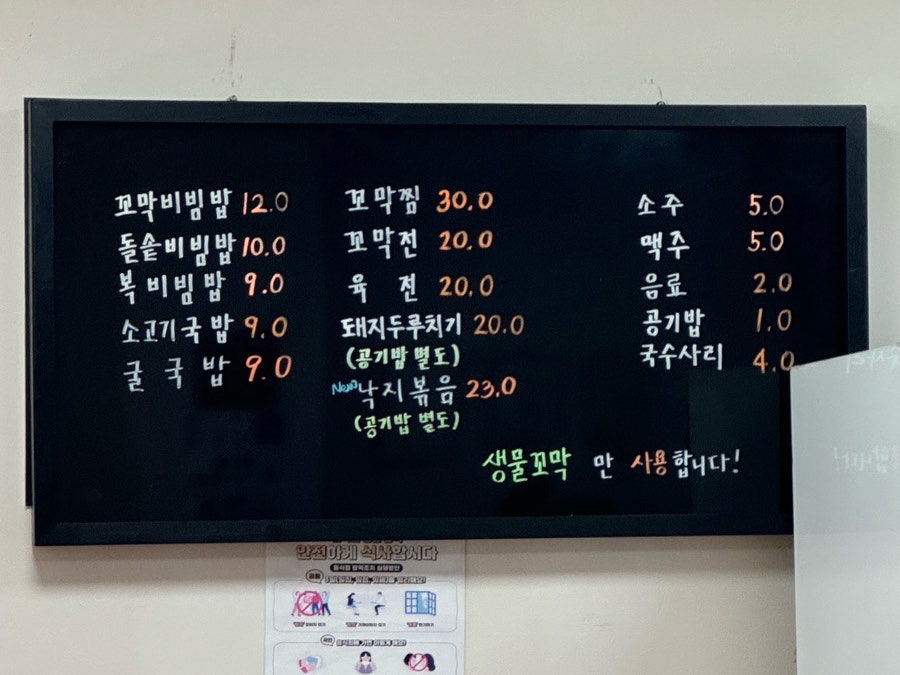 꼬막비빔밥 12.0
돌솥비빔밥 10.0
복비빔밥 9.0
소고기국밥 9.0
굴국밥 9.0
꼬막찜 30.0
꼬막전 20.0
육전 20.0
돼지두루치기 20.0
(공기밥 별도)
New 낙지볶음 23.0
(공기밥 별도)
소주 5.0
맥주 5.0
음료 2.0
공기밥 1.0
국수사리 4.0
생물꼬막 만 사용합니다!
안전하게 식사합시다
음식점 방역조치 실행방안